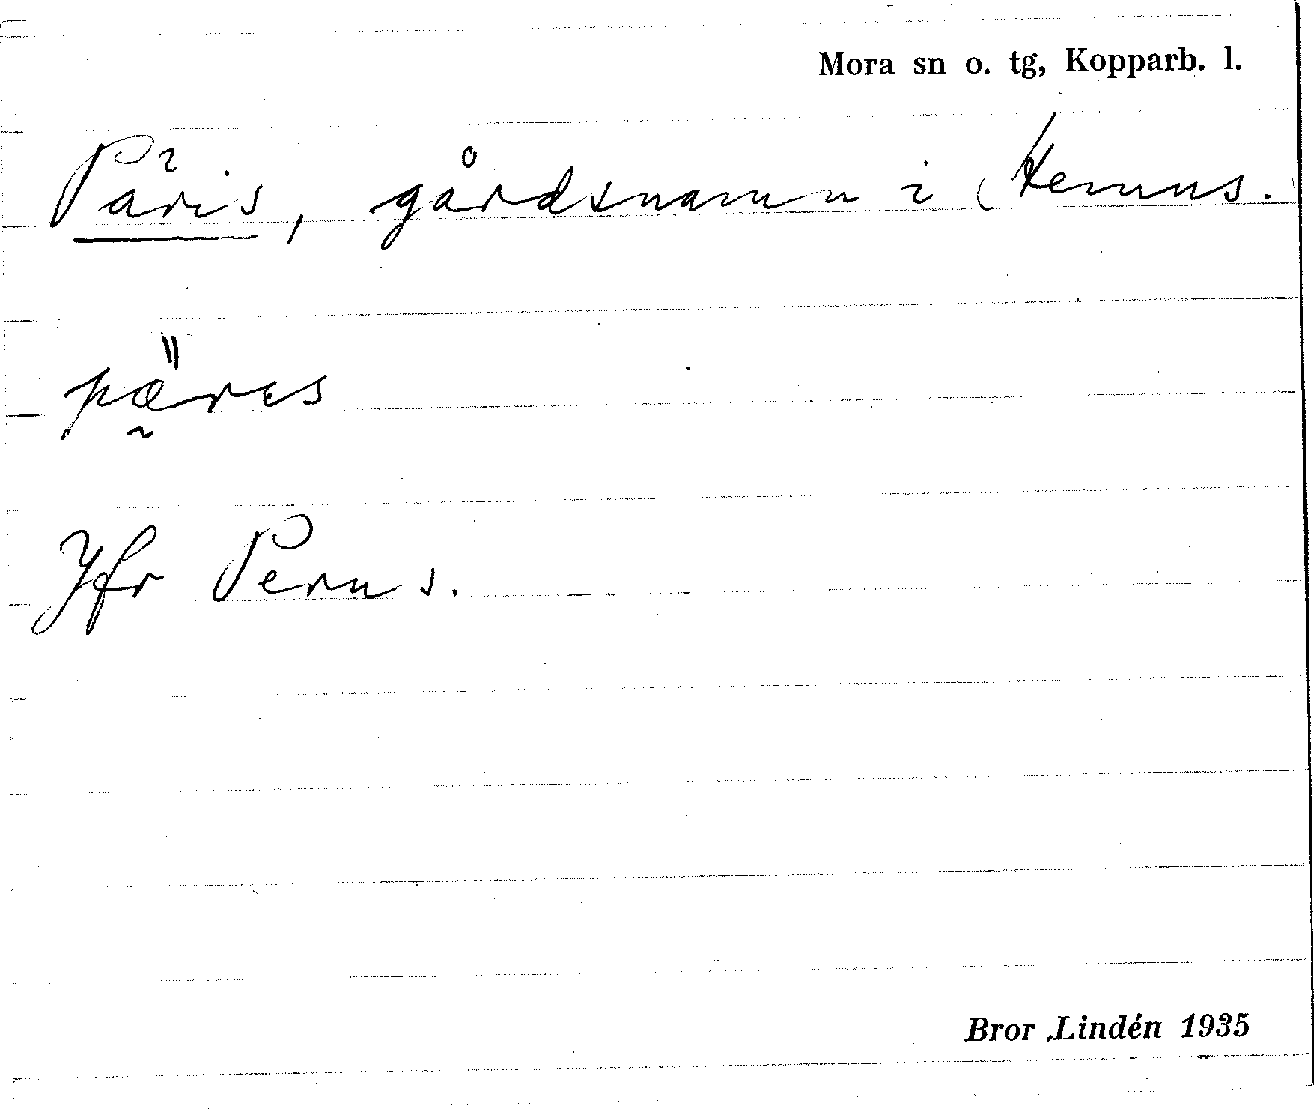 Mora sn o. tg, Kopparb. l.
Päris, gårdsnamn i Hemus.
päres
Jfr Perus.
Bror Lindén 1935